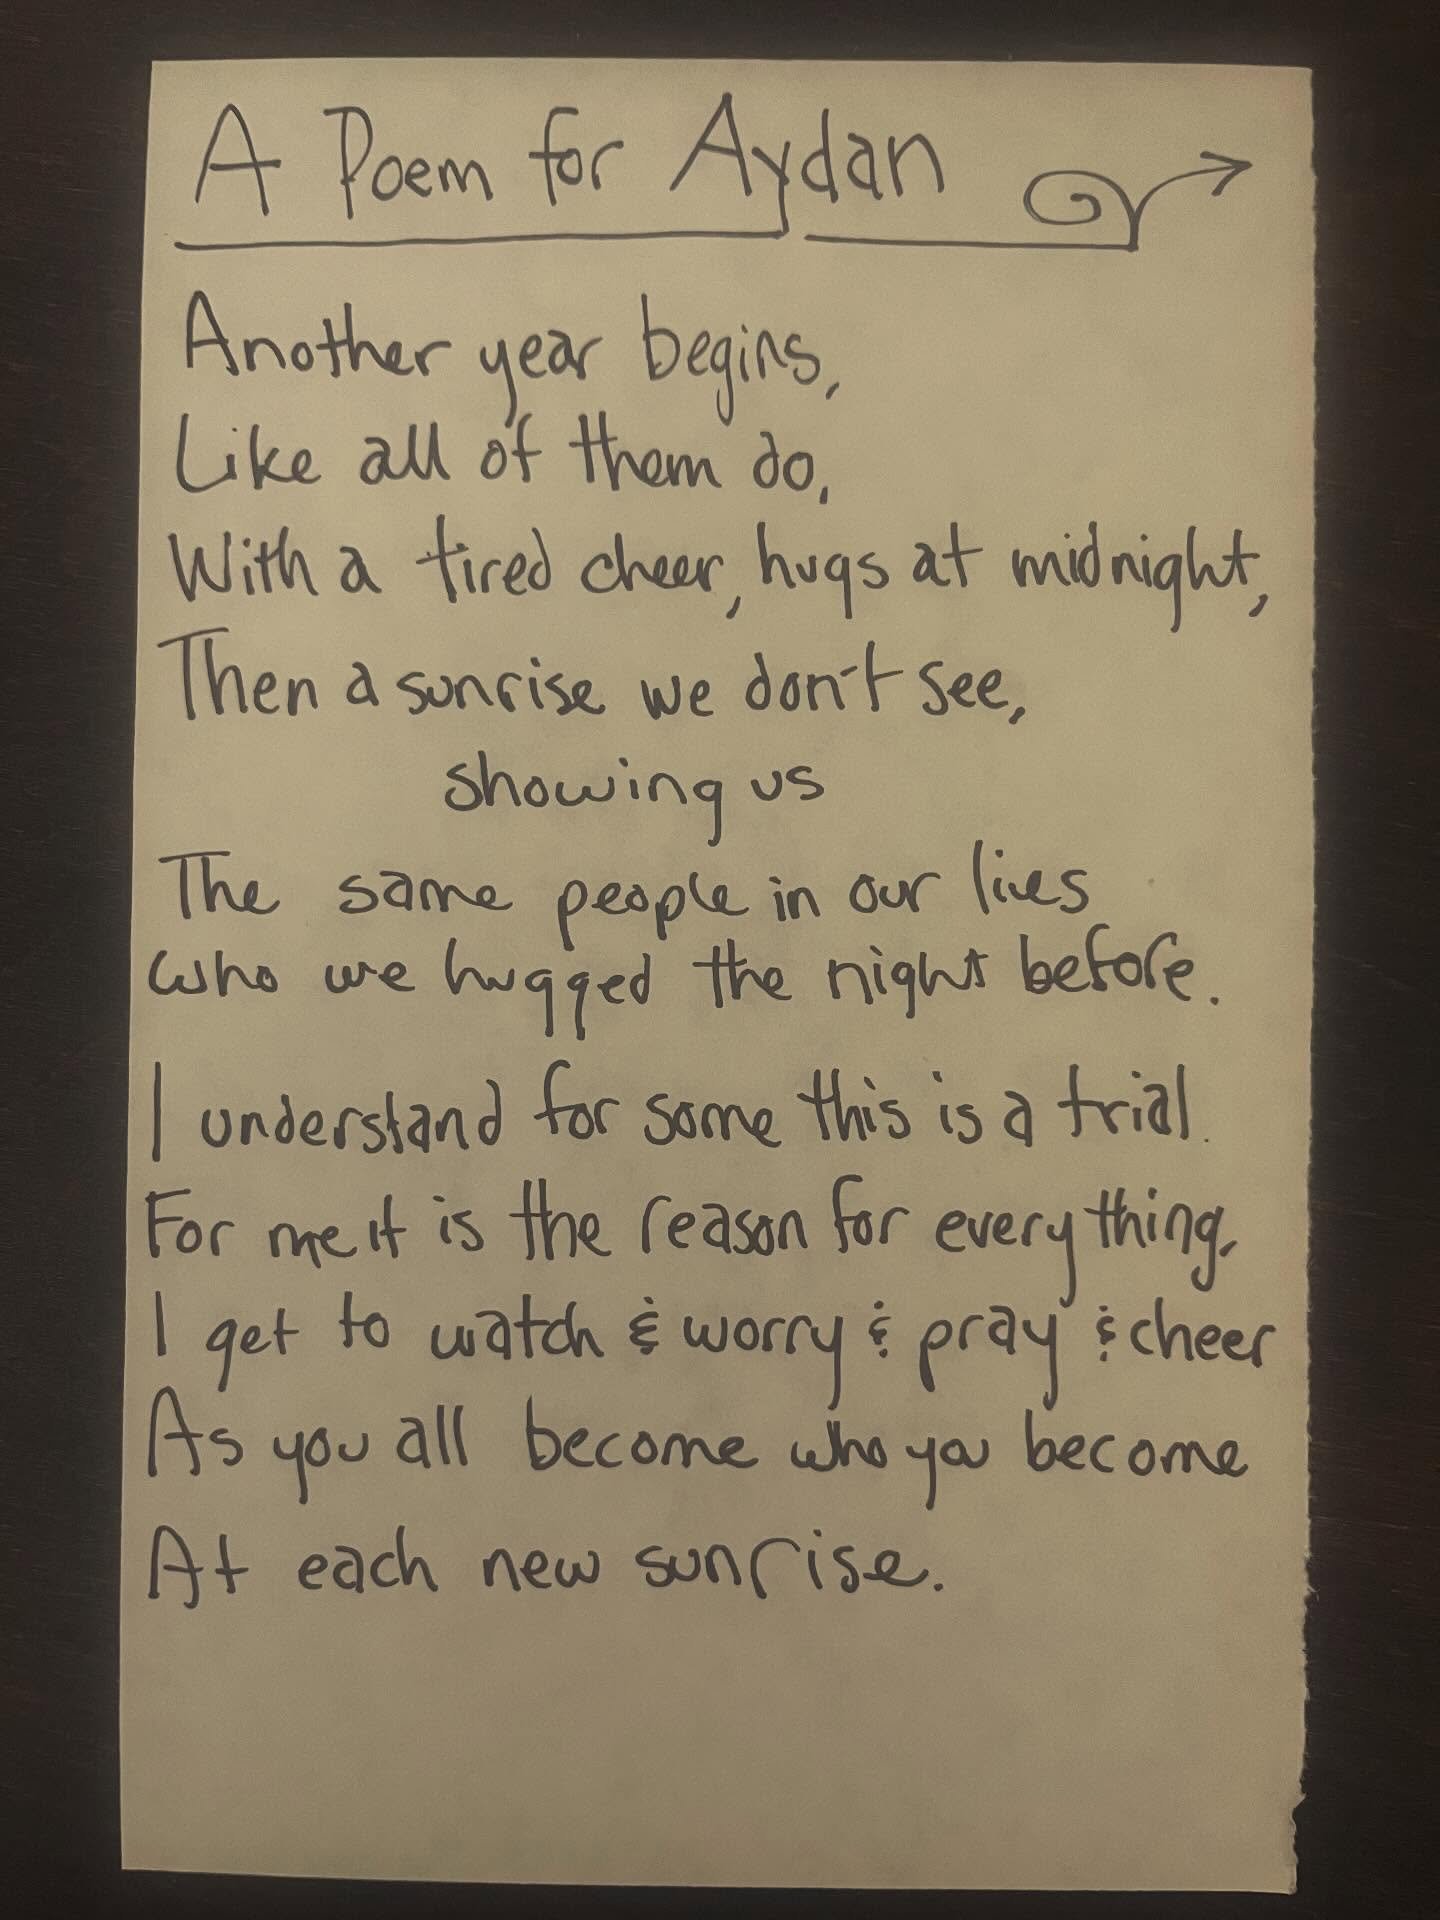 A Poem for Aydan
Another year begins,
Like all of them do,
With a tired cheer, hugs at midnight,
Then a sunrise we don't see,
showing us
The same people in our lives
who we hugged the night before.
I understand for some this is a trial.
For me it is the reason for everything.
I get to watch & worry & pray & cheer
As you all become who you become
At each new sunrise.